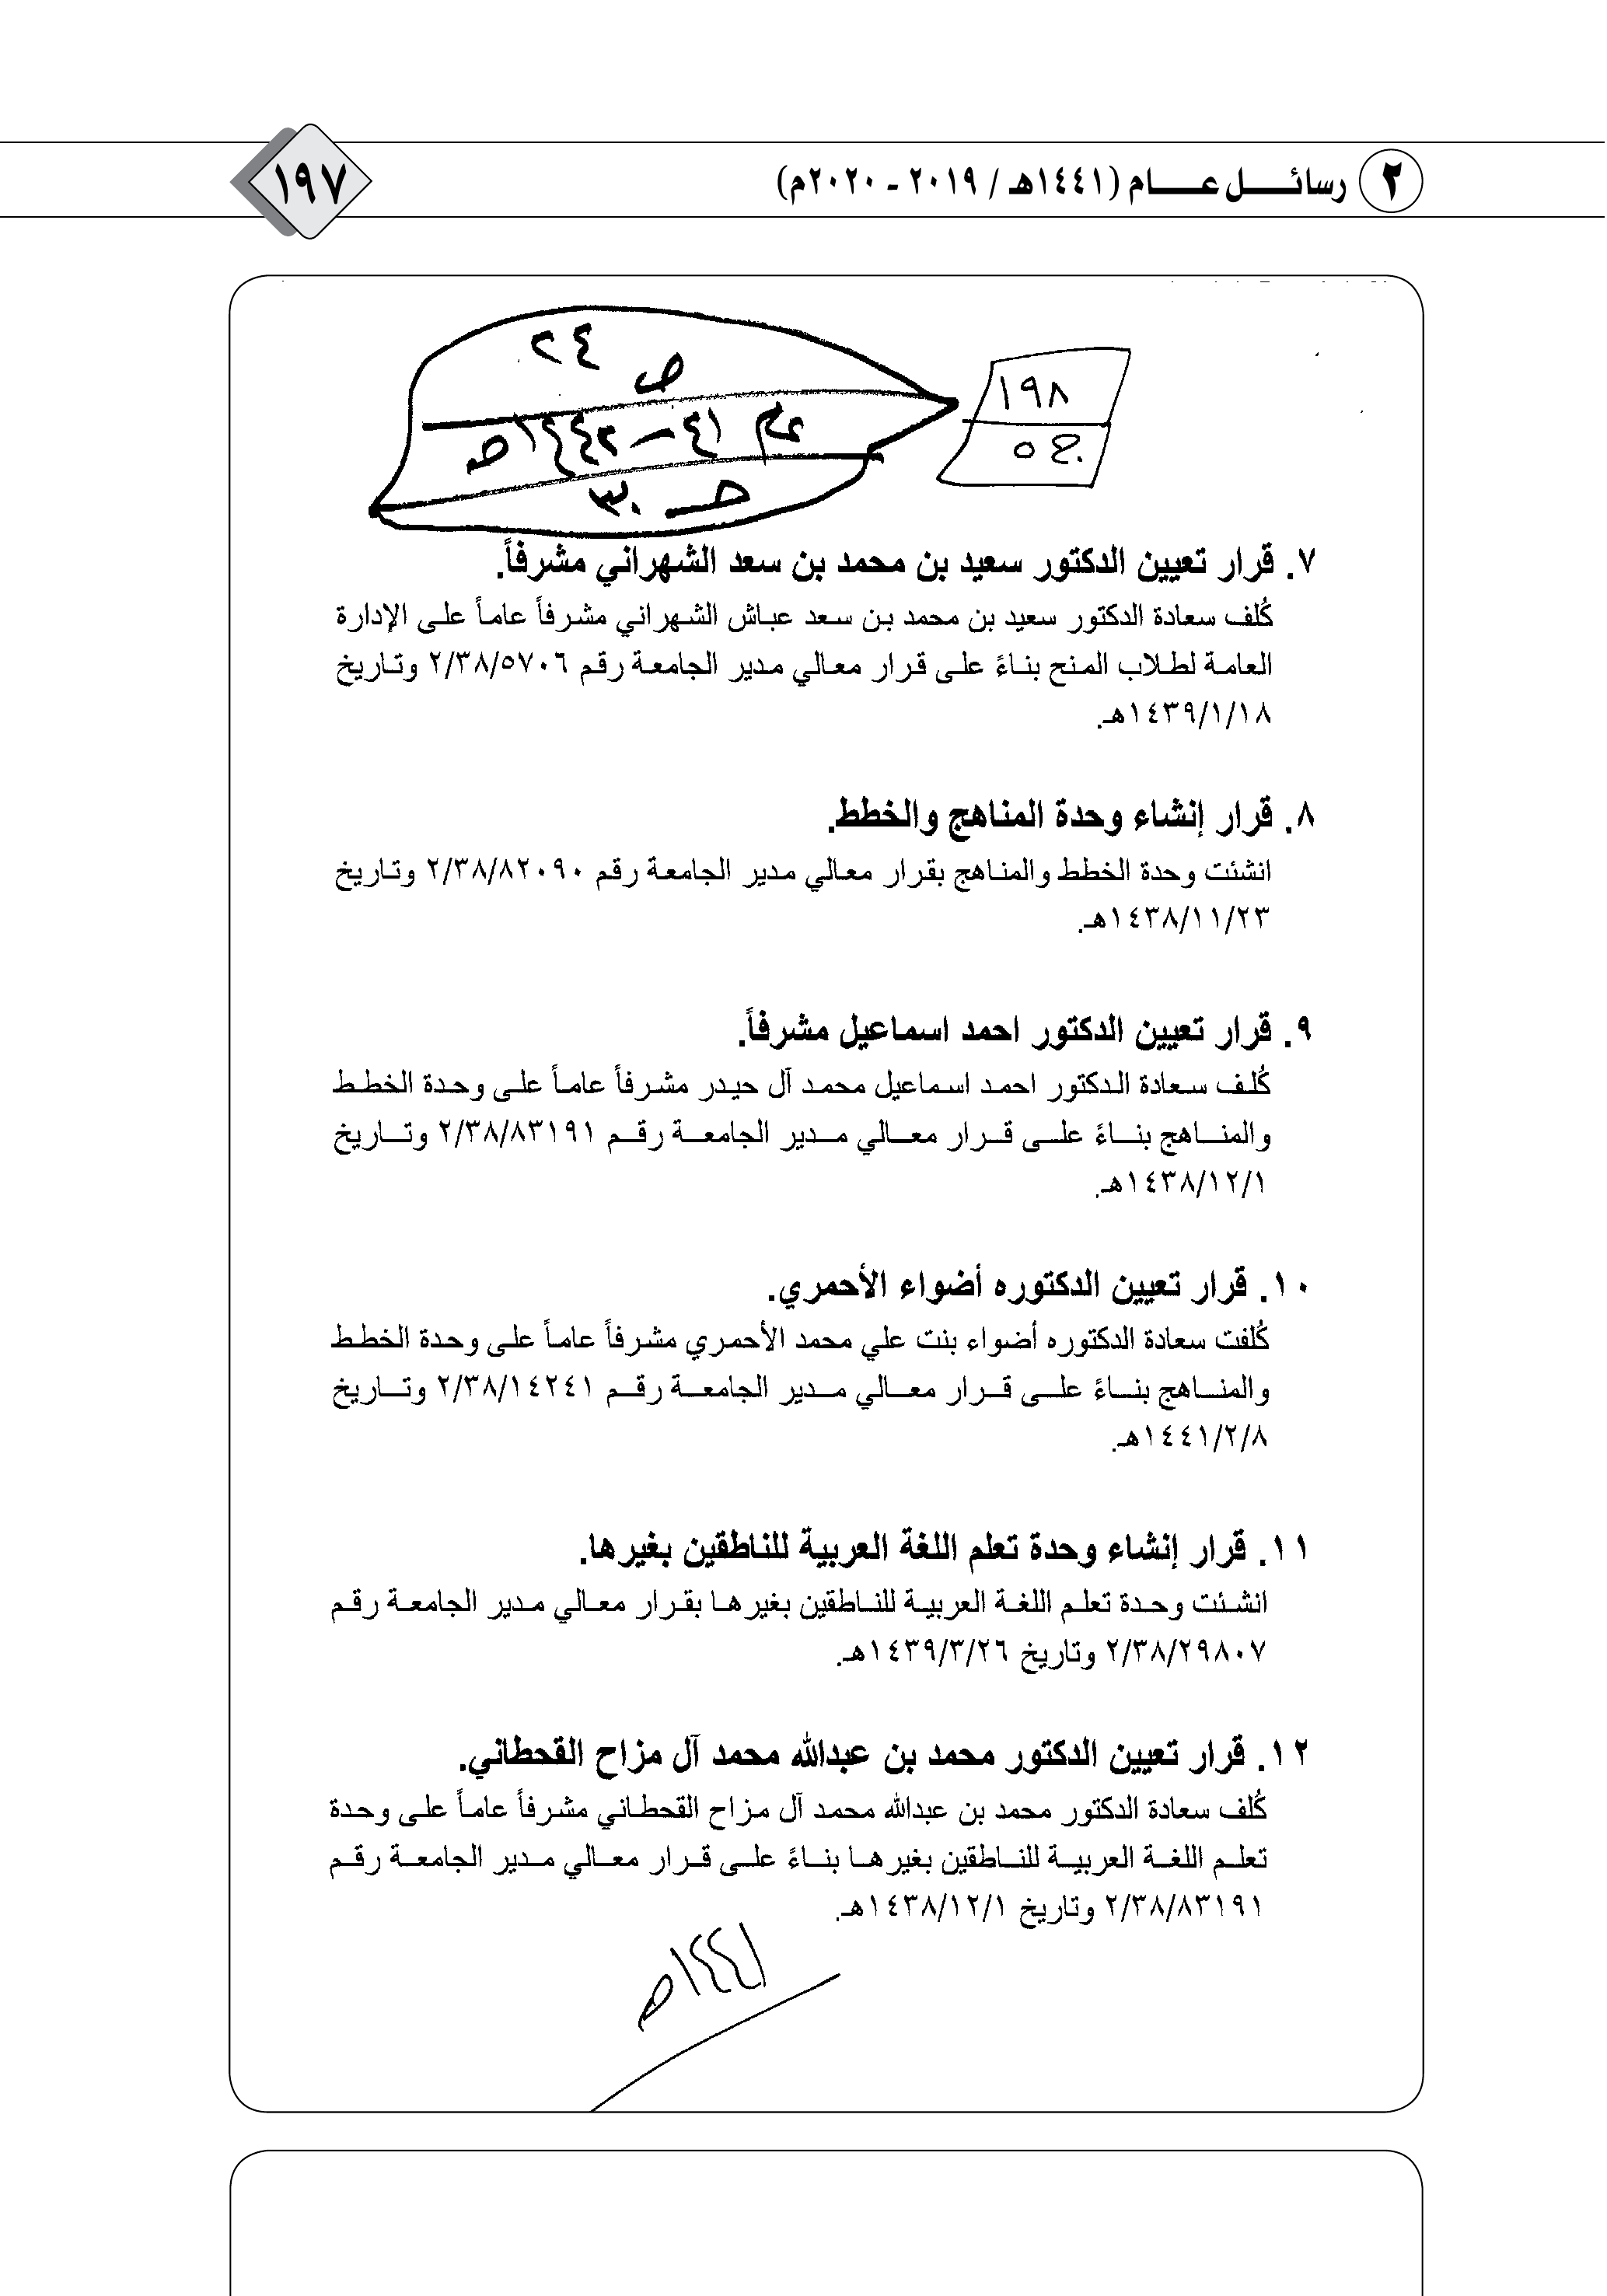 ٢ رسائـــــل عـــــام (١٤٤١هـ / ٢٠١٩ - ٢٠٢٠م)
١٩٧
١٩٨
ج٥
٢٤
ص
عام ٤١ – ١٤٤٢هـ
حـ ٣٠
٧. قرار تعيين الدكتور سعيد بن محمد بن سعد الشهراني مشرفاً.
كُلف سعادة الدكتور سعيد بن محمد بن سعد عباش الشهراني مشرفاً عاماً على الإدارة
العامة لطلاب المنح بناءً على قرار معالي مدير الجامعة رقم ٢/٣٨/٥٧٠٦ وتاريخ
١٤٣٩/١/١٨هـ.
٨. قرار إنشاء وحدة المناهج والخطط.
انشئت وحدة الخطط والمناهج بقرار معالي مدير الجامعة رقم ٢/٣٨/٨٢٠٩٠ وتاريخ
١٤٣٨/١١/٢٣هـ.
٩. قرار تعيين الدكتور احمد اسماعيل مشرفاً.
كُلف سعادة الدكتور احمد اسماعيل محمد آل حيدر مشرفاً عاماً على وحدة الخطط
والمناهج بناءً على قرار معالي مدير الجامعة رقم ٢/٣٨/٨٣١٩١ وتاريخ
١٤٣٨/١٢/١هـ.
١٠. قرار تعيين الدكتوره أضواء الأحمري.
كُلفت سعادة الدكتوره أضواء بنت علي محمد الأحمري مشرفاً عاماً على وحدة الخطط
والمناهج بناءً على قرار معالي مدير الجامعة رقم ٢/٣٨/١٤٢٤١ وتاريخ
١٤٤١/٢/٨هـ.
١١. قرار إنشاء وحدة تعلم اللغة العربية للناطقين بغيرها.
انشئت وحدة تعلم اللغة العربية للناطقين بغيرها بقرار معالي مدير الجامعة رقم
٢/٣٨/٢٩٨٠٧ وتاريخ ١٤٣٩/٣/٢٦هـ.
١٢. قرار تعيين الدكتور محمد بن عبدالله محمد آل مزاح القحطاني.
كُلف سعادة الدكتور محمد بن عبدالله محمد آل مزاح القحطاني مشرفاً عاماً على وحدة
تعلم اللغة العربية للناطقين بغيرها بناءً على قرار معالي مدير الجامعة رقم
٢/٣٨/٨٣١٩١ وتاريخ ١٤٣٨/١٢/١هـ.
١٤٤١هـ